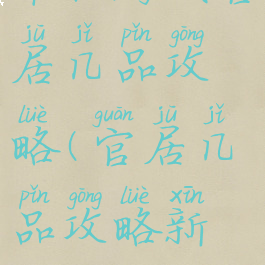 jū jǐ pǐn gōng
居几品攻
lüè guān jū jǐ
略(官居几
pǐn gōng lüè xīn
品攻略新